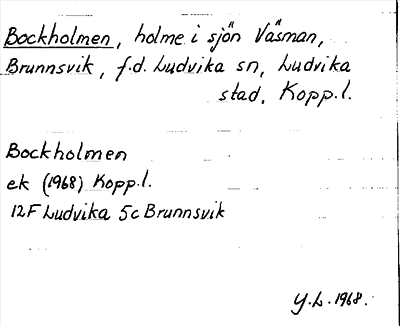 Bockholmen, holme i sjön Väsman,
Brunnsvik, f.d. Ludvika sn, Ludvika
stad, Kopp.l.
Bockholmen
ek (1968) Kopp.l.
12F Ludvika 5c Brunnsvik
Y.L. 1968.